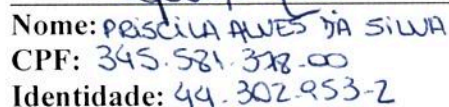 Nome: PRISCILA ALVES DA SILVA
CPF: 345.581.378-00
Identidade: 44.302.953-2